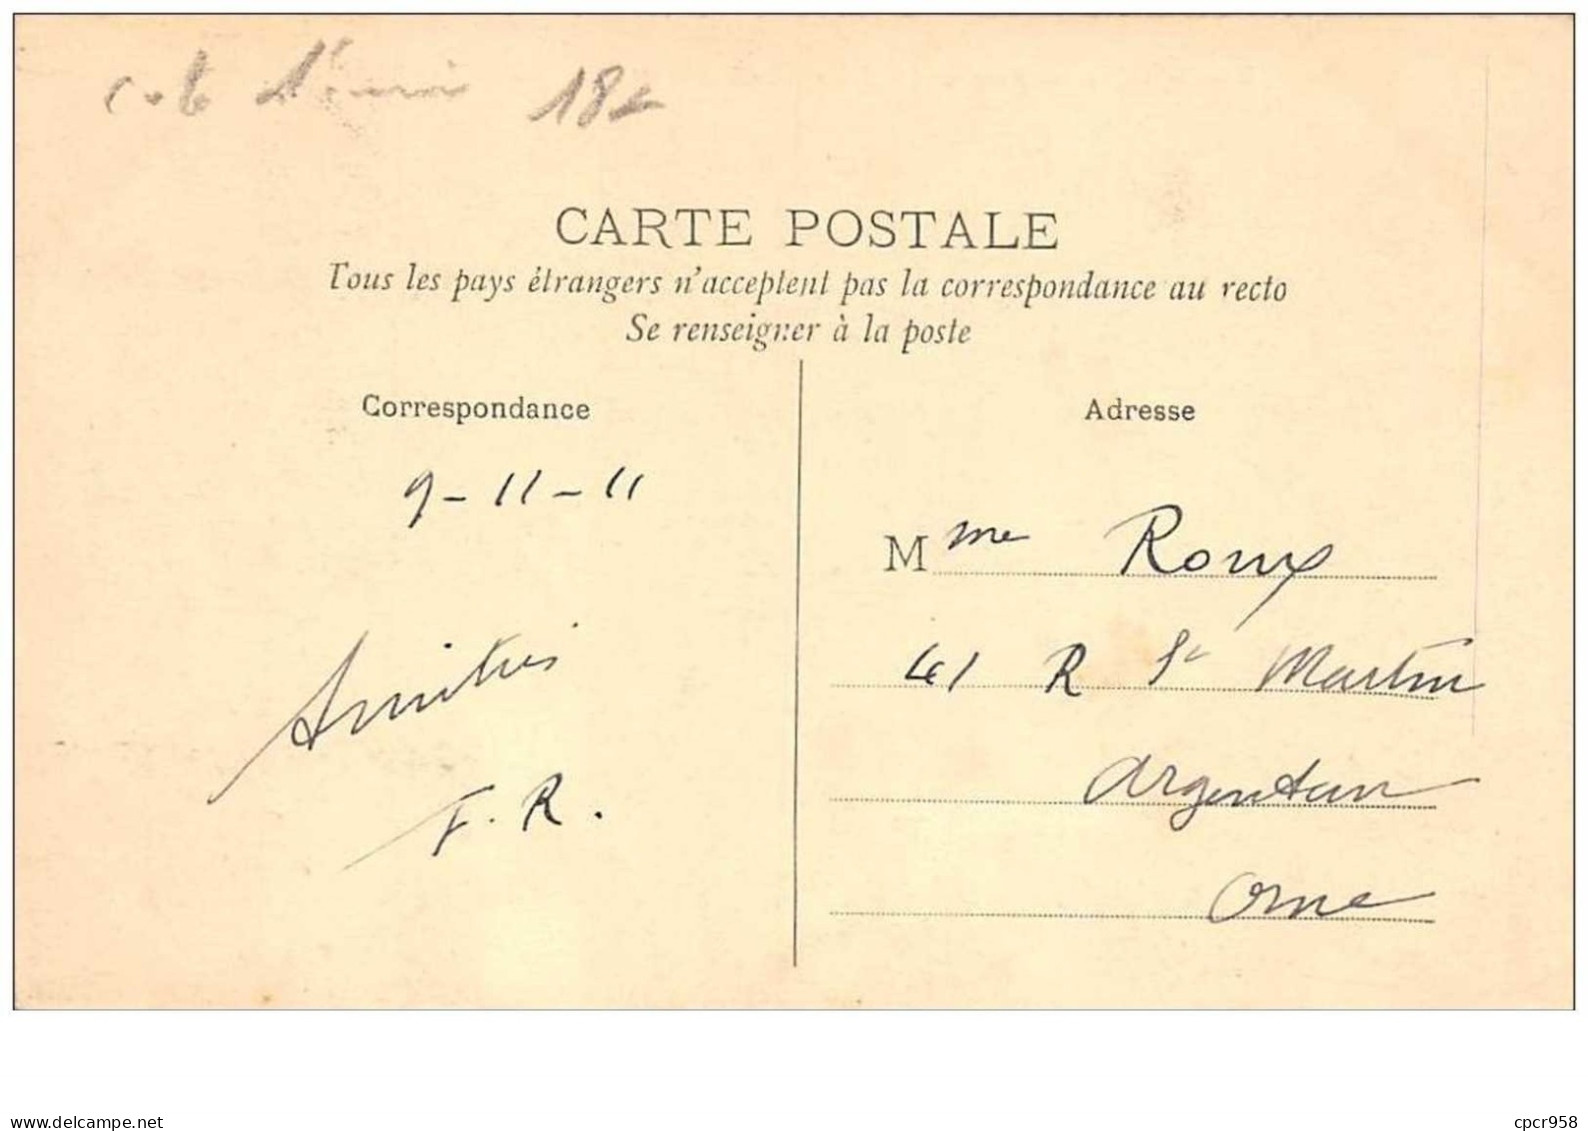 18
CARTE POSTALE
Tous les pays étrangers n'acceptent pas la correspondance au recto
Se renseigner à la poste
Correspondance
9-11-11
Amitiés
F. R.
Adresse
Mme Roux
41 R St Martin
Argentan
Orne
www.delcampe.net
cpcr958